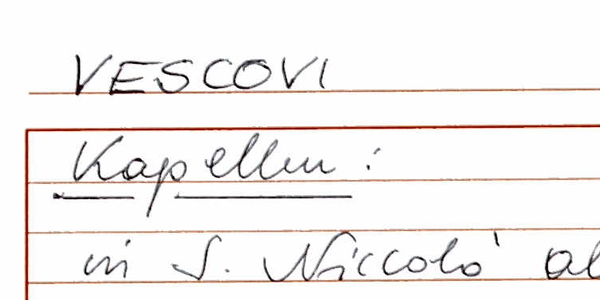 VESCOVI
Kapellen:
in S. Niccolò al